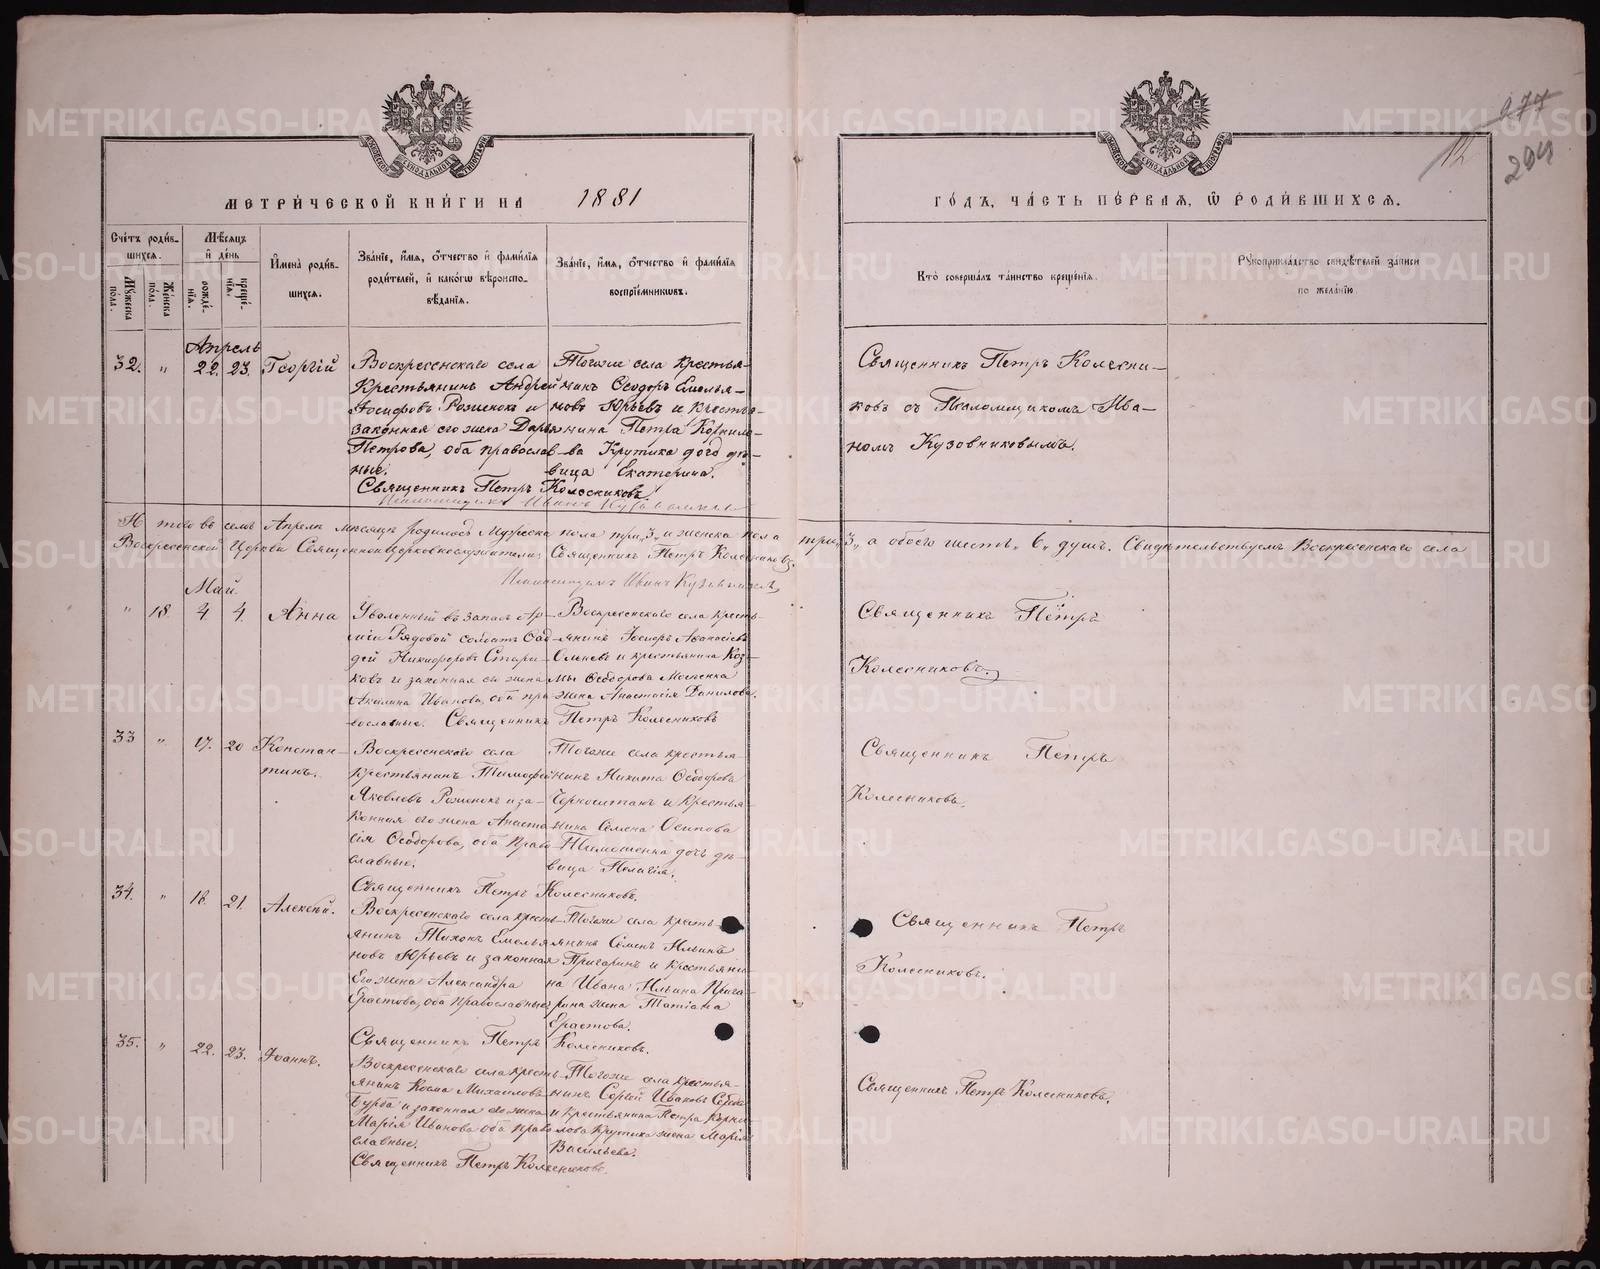 277
12
294
МЕТРИЧЕСКОЙ КНИГИ НА 1881
ГОДЪ, ЧАСТЬ ПЕРВАЯ, Ѿ РОДИВШИХСЯ.
Счетъ родившихся.
Мѣсяцъ и день
Имена родившихся.
Званіе, имя, отчество и фамилія родителей, и какогѡ вѣроисповѣданія.
Званіе, имя, отчество и фамилія воспріемникѡвъ.
Кто совершалъ таинство крещенія.
Рукоприкладство свидѣтелей записи по желанію.
Мужеска пола.
Женска пола.
рожденія.
крещенія.
Апрель
32. " 22. 23. Георгій
Воскресенскаго села
Крестьянинъ Андрей
Іосифовъ Роженокъ и
законная его жена Дарья
Петрова, оба православные.
Тогоже села крестьянинъ Ѳеодоръ Емельяновъ Юрьевъ и крестьянина Петра Корнилова Крутика дочь девица Екатерина.
Священникъ Петръ Колесниковъ
Псаломщикъ Иванъ Кузовников
Священникъ Петръ Колесниковъ съ Псаломщикомъ Иваномъ Кузовниковымъ.
Итого въ семъ Апреле месяце родилось Мужеска пола три "3" и женска пола три "3", а обоего шесть "6" душъ. Свидетельствуемъ Воскресенскаго села
Воскресенской Церкви Священноцерковнослужители: Священникъ Петръ Колесниковъ.
Псаломщикъ Иванъ Кузовников
Май
" 18. 4 4. Анна
Уволенный въ запасъ Армии Рядовой солдатъ Фаддей Никифоровъ Стариковъ и законная его жена Акилина Иванова, оба православные.
Воскресенскаго села крестьянинъ Іосифъ Аѳанасіевъ и крестьянина Козмы Ѳеодорова жена Анастасія Данилова.
Священникъ Петръ Колесниковъ
Священникъ Петръ
Колесниковъ.
33 " 17. 20 Константинъ.
Воскресенскаго села
крестьянинъ Тимофей
Яковлевъ Роженокъ и законная его жена Анастасія Ѳеодорова, оба православные.
Тогоже села крестьянинъ Никита Ѳеодоровъ Черноштанъ и крестьянина Семена Осипова Тимошенка дочь девица Пелагія.
Священникъ Петръ Колесниковъ.
Священникъ Петръ
Колесниковъ.
34. " 18. 21. Алексѣй.
Воскресенскаго села крестьянинъ Тихонъ Емельяновъ Юрьевъ и законная Его жена Александра Ерастова, оба православные
Тогоже села крестьянинъ Семенъ Ильинъ Пригаринъ и крестьянина Ивана Ильина Пригарина жена Татіана Ерастова.
Священникъ Петръ Колесниковъ.
Священникъ Петръ
Колесниковъ.
35. " 22. 23. Іоаннъ.
Воскресенскаго села крестьянинъ Косма Михаиловъ Бурба и законная его жена Марія Иванова оба православные.
Тогоже села крестьянинъ Сергѣй Ивановъ и крестьянина Петра Корнилова Крутика жена Марія Васильева.
Священникъ Петръ Колесниковъ.
Священникъ Петръ Колесниковъ.
METRIKI.GASO-URAL.RU